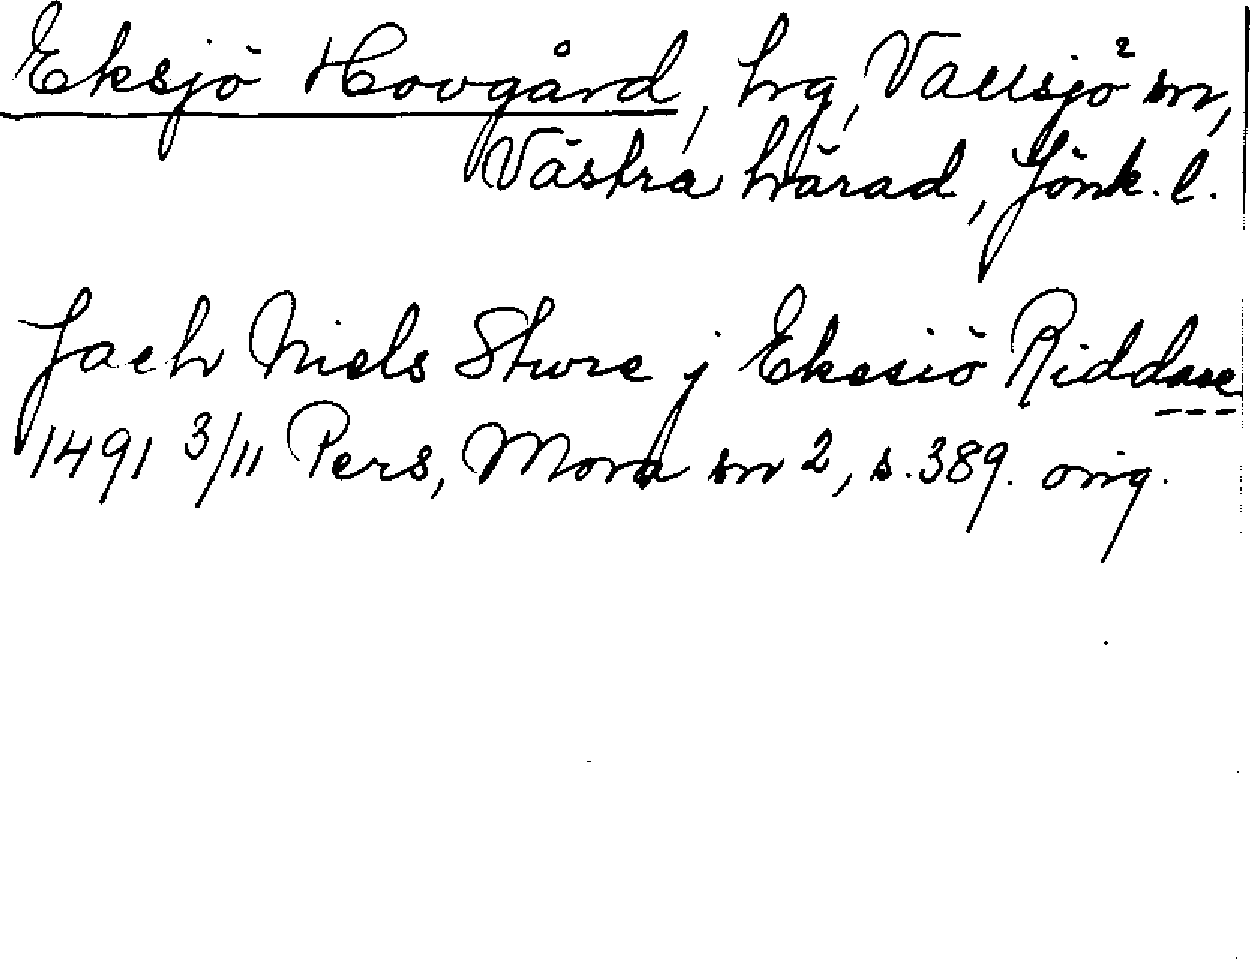 Eksjö Hovgård, hrg, Vallsjö sn,
Västra härad, Jönk. l.
Jach Niels Sture j Ekesiö Riddare
1491 3/11 Pers, Mora sn 2, s. 389. orig.